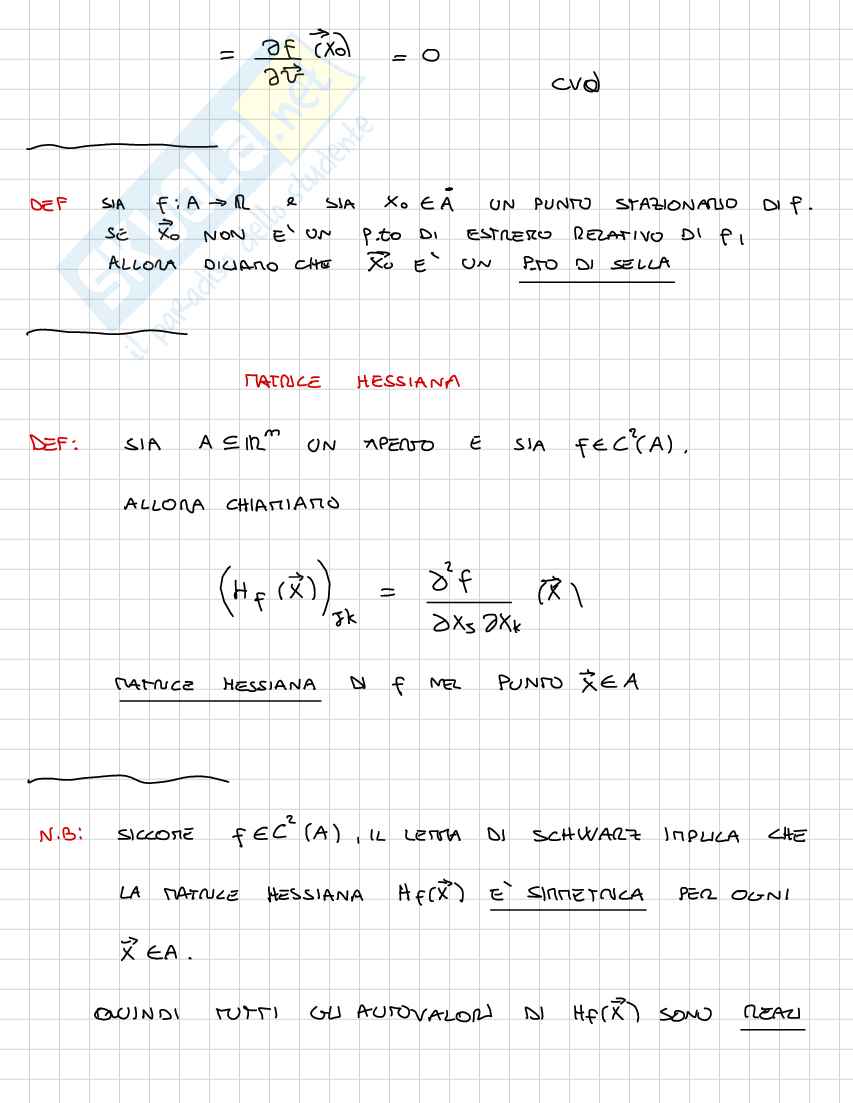 = ∂f/∂v⃗ (x⃗₀) = 0
cvd
DEF SIA f: A → ℝ e SIA x₀ ∈ Å UN PUNTO STAZIONARIO DI f.
SE x⃗₀ NON E' UN P.TO DI ESTREMO RELATIVO DI f,
ALLORA DICIAMO CHE x⃗₀ E' UN P.TO DI SELLA
MATRICE HESSIANA
DEF: SIA A ⊆ ℝᵐ UN APERTO E SIA f ∈ C²(A).
ALLORA CHIAMIAMO
(H_f(x⃗))_jk = ∂²f/∂x_j ∂x_k (x⃗)
MATRICE HESSIANA DI f NEL PUNTO x⃗ ∈ A
N.B: SICCOME f ∈ C²(A), IL LEMMA DI SCHWARZ IMPLICA CHE
LA MATRICE HESSIANA H_f(x⃗) E' SIMMETRICA PER OGNI
x⃗ ∈ A.
QUINDI TUTTI GLI AUTOVALORI DI H_f(x⃗) SONO REALI
skuola.net
il paradiso dello studente